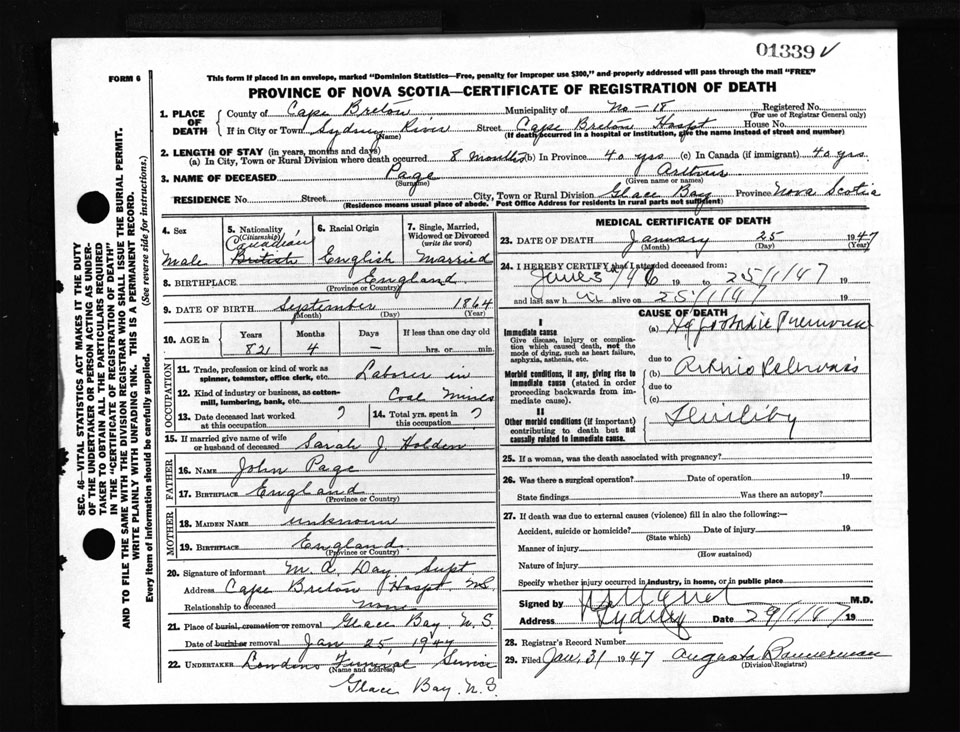 01339 V
FORM 6
This form if placed in an envelope, marked "Dominion Statistics—Free, penalty for improper use $300," and properly addressed will pass through the mail "FREE"
PROVINCE OF NOVA SCOTIA—CERTIFICATE OF REGISTRATION OF DEATH
SEC. 46—VITAL STATISTICS ACT MAKES IT THE DUTY
OF THE UNDERTAKER OR PERSON ACTING AS UNDER-
TAKER TO OBTAIN ALL THE PARTICULARS REQUIRED
IN THE "CERTIFICATE OF REGISTRATION OF DEATH"
AND TO FILE THE SAME WITH THE DIVISION REGISTRAR WHO SHALL ISSUE THE BURIAL PERMIT.
WRITE PLAINLY WITH UNFADING INK. THIS IS A PERMANENT RECORD.
Every item of information should be carefully supplied. (See reverse side for instructions.)
1. PLACE OF DEATH
County of Cape Breton Municipality of No-18 Registered No.
(For use of Registrar General only)
If in City or Town Sydney River Street Cape Breton Hospt House No.
(Name) (If death occurred in a hospital or institution, give the name instead of street and number)
2. LENGTH OF STAY (in years, months and days)
(a) In City, Town or Rural Division where death occurred 8 months (b) In Province 40 yrs (c) In Canada (if immigrant) 40 yrs.
3. NAME OF DECEASED Page Arthur
(Surname) (Given name or names)
RESIDENCE No. Street City, Town or Rural Division Glace Bay Province Nova Scotia
(Residence means usual place of abode. Post Office Address for residents in rural parts not sufficient)
4. Sex
Male
5. Nationality
(Citizenship)
Canadian
British
6. Racial Origin
English
7. Single, Married,
Widowed or Divorced
(write the word)
Married
8. BIRTHPLACE England
(Province or Country)
9. DATE OF BIRTH September 1864
(Month) (Day) (Year)
10. AGE IN
Years Months Days If less than one day old
82 4 — hrs. or min.
OCCUPATION
11. Trade, profession or kind of work as
spinner, teamster, office clerk, etc. Laborer in
12. Kind of industry or business, as cotton-
mill, lumbering, bank, etc. Coal Mines
13. Date deceased last worked
at this occupation ?
14. Total yrs. spent in
this occupation ?
15. If married give name of wife
or husband of deceased Sarah J. Holden
FATHER
16. NAME John Page
17. BIRTHPLACE England
(Province or Country)
MOTHER
18. MAIDEN NAME unknown
19. BIRTHPLACE England
(Province or Country)
20. Signature of informant M. A. Day Supt
Address Cape Breton Hospt N.S.
Relationship to deceased none
21. Place of burial, cremation or removal Glace Bay N.S.
Date of burial or removal Jan 25, 1947
22. UNDERTAKER Funeral Service
(Name and address)
Glace Bay. N.S.
MEDICAL CERTIFICATE OF DEATH
23. DATE OF DEATH January 25 1947
(Month) (Day) (Year)
24. I HEREBY CERTIFY that I attended deceased from:
June 5/46 19 to 25/1/47 19
and last saw h alive on 25/1/47 19
CAUSE OF DEATH
I
Immediate cause
Give disease, injury or complica-
tion which caused death, not the
mode of dying, such as heart failure,
asphyxia, asthenia, etc.
(a)
due to
Morbid conditions, if any, giving rise to
immediate cause (stated in order
proceeding backwards from im-
mediate cause).
(b)
due to
(c)
II
Other morbid conditions (if important)
contributing to death but not
causally related to immediate cause.
25. If a woman, was the death associated with pregnancy?
26. Was there a surgical operation? Date of operation 19
State findings Was there an autopsy?
27. If death was due to external causes (violence) fill in also the following:—
Accident, suicide or homicide? Date of injury 19
(State which)
Manner of injury
(How sustained)
Nature of injury
Specify whether injury occurred in industry, in home, or in public place
Signed by M.D.
Address Sydney Date 29/1/47 19
28. Registrar's Record Number
29. Filed Jan. 31 1947 Augusta Bannerman
(Division Registrar)